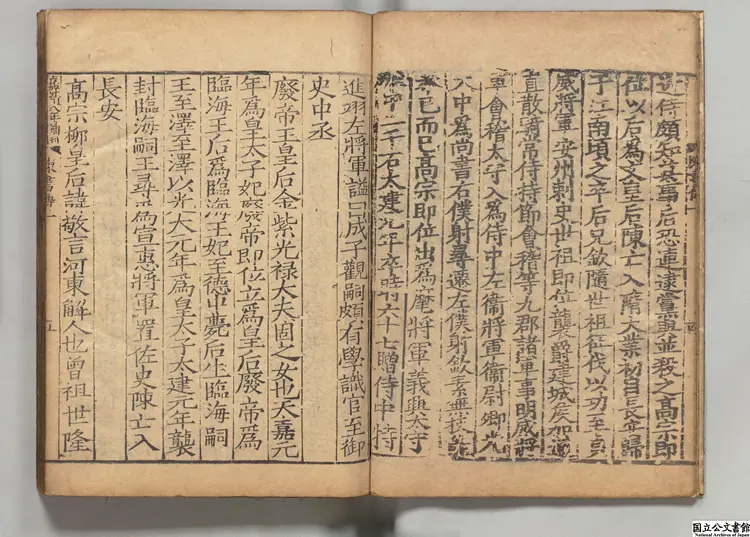 近侍頗知其事后恐連逮黨與並殺之高宗即
位以后為文皇后陳亡入隋大業初自長安歸
于江南頃之卒后兄欽隨世祖征伐以功至貞
威將軍安州刺史世祖即位襲爵建城侯加通
直散騎常侍持節會稽等九郡諸軍事明威將
軍會稽太守入為侍中左衛將軍衛尉卿光
大中為尚書右僕射尋遷左僕射欽素無技能
奉己而已高宗即位出為 麾將軍義興太守
二千石太建元年卒時年六十七贈侍中特
進翊左將軍謚曰成子觀嗣頗有學識官至御
史中丞
廢帝王皇后金紫光禄大夫固之女也天嘉元
年為皇太子妃廢帝即位立為皇后廢帝為
臨海王后為臨海王妃至德中薨后生臨海嗣
王至澤至澤以光大元年為皇太子太建元年襲
封臨海嗣王尋為宣惠將軍置佐史陳亡入
長安
高宗柳皇后諱敬言河東解人也曾祖世隆
嘉靖八年補刊 陳書傳一 五
国立公文書館
National Archives of Japan